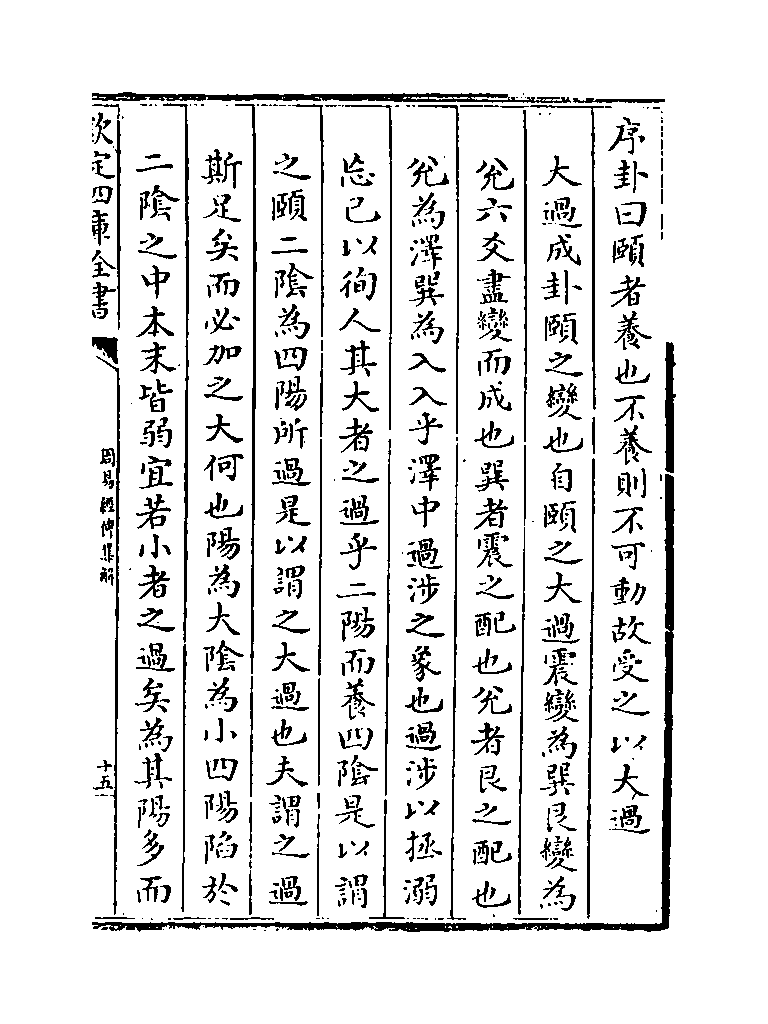 序卦曰頤者養也不養則不可動故受之以大過
大過成卦頤之變也自頤之大過震變為巽艮變為
兊六爻盡變而成也巽者震之配也兊者艮之配也
兊為澤巽為入入乎澤中過涉之象也過涉以拯溺
忘已以徇人其大者之過乎二陽而養四陰是以謂
之頤二陰為四陽所過是以謂之大過也夫謂之過
斯足矣而必加之大何也陽為大陰為小四陽陷於
二陰之中本末皆弱宜若小者之過矣為其陽多而
欽定四庫全書
周易經傳集解
十五